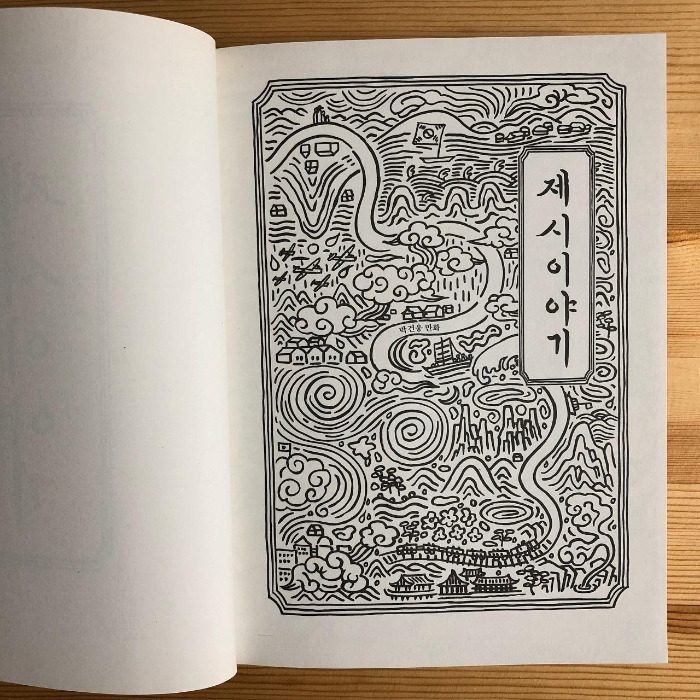 제시이야기
박건웅 만화